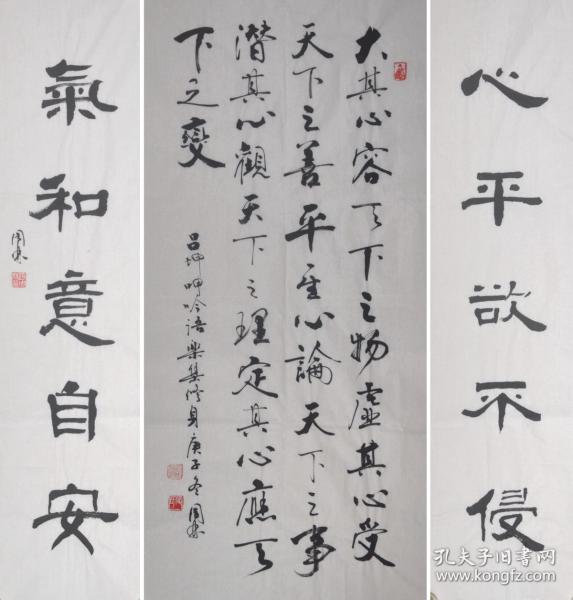 心平欲不侵
大其心容天下之物虚其心受
天下之善平其心論天下之事
潛其心觀天下之理定其心應天
下之變
吕坤呻吟语
修身庚子冬
氣和意自安
孔夫子旧书网
www.kongfz.com